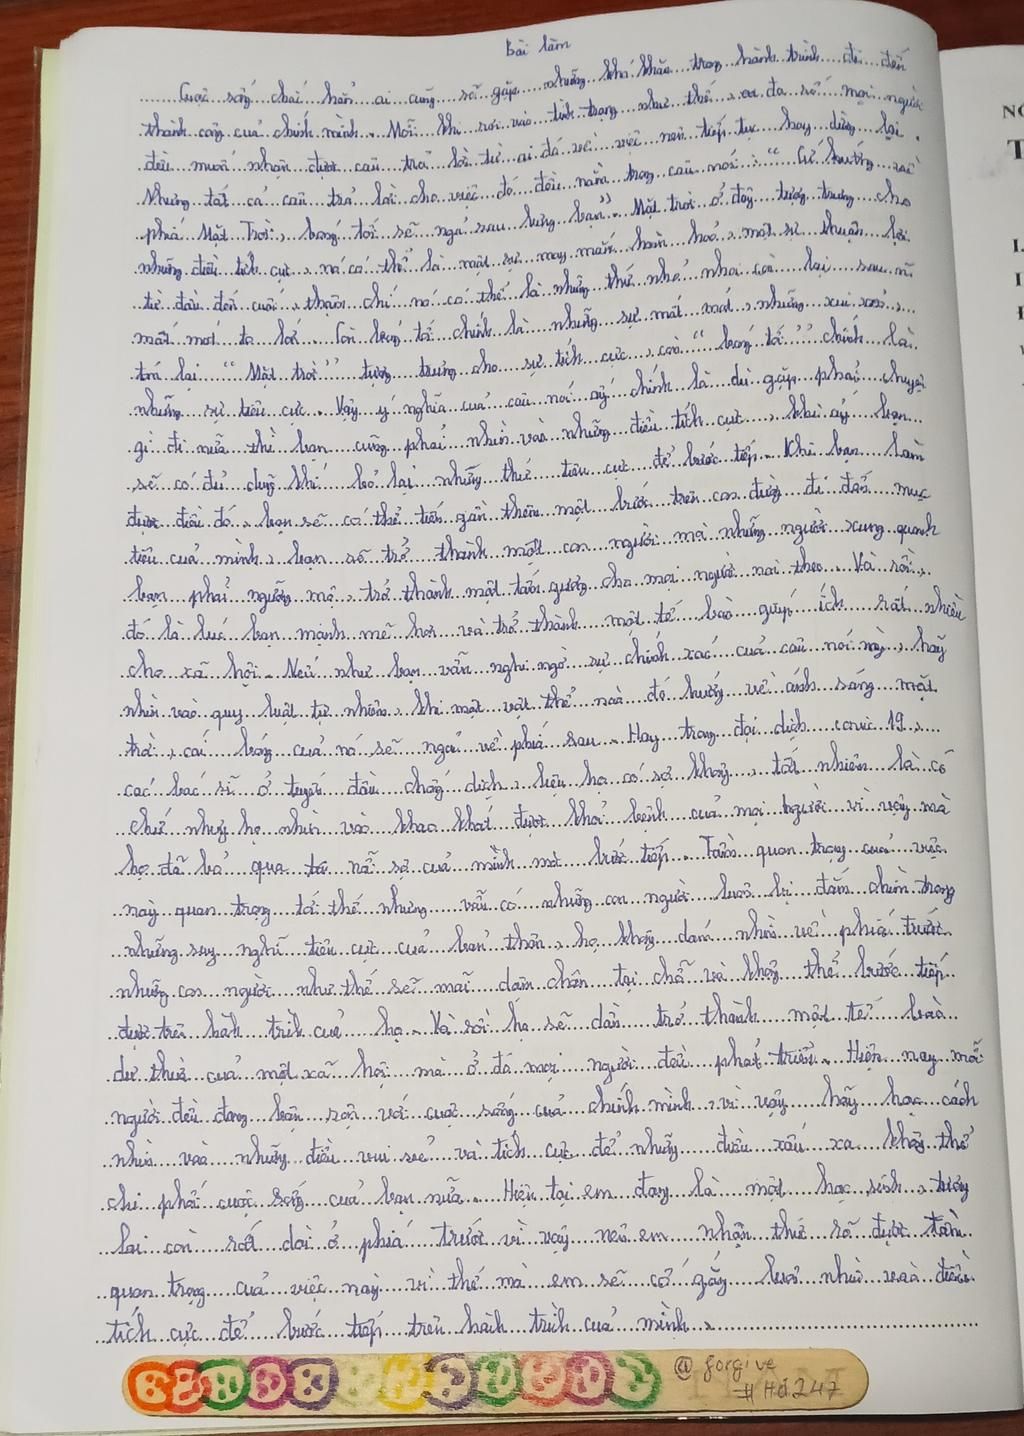 Bài làm
Cuộc sống chắc hẳn ai cũng sẽ gặp những khó khăn trong hành trình đi đến
thành công của chính mình. Mỗi khi rơi vào tình trạng như thế, đa số mọi người
đều muốn nhận được câu trả lời từ ai đó về việc nên tiếp tục hay dừng lại.
Nhưng tất cả câu trả lời cho việc đó đều nằm trong câu nói: "Cứ hướng về
phía Mặt Trời, bóng tối sẽ ngả sau lưng bạn". Mặt trời ở đây tượng trưng cho
những điều tích cực, nó có thể là một sự may mắn, hoàn hảo, một sự thuận lợi
từ đầu đến cuối, thậm chí nó có thể là những thứ nhỏ nhoi còn lại sau
mất mát to lớn. Còn bóng tối chính là những sự mất mát, những xui xẻo,
trá lại "Mặt trời" tượng trưng cho sự tích cực, còn "bóng tối" chính là
những sự tiêu cực. Vậy ý nghĩa của câu nói ấy chính là dù gặp phải chuyện
gì đi nữa thì bạn cũng phải nhìn vào những điều tích cực, khi ấy bạn
sẽ có đủ dũng khí bỏ lại những thứ tiêu cực để bước tiếp. Khi bạn làm
được điều đó, bạn sẽ có thể tiến gần thêm một bước trên con đường đi đến mục
tiêu của mình, bạn sẽ trở thành một con người mà những người xung quanh
bạn phải ngưỡng mộ, trở thành một tấm gương cho mọi người noi theo. Và rồi,
đó là lúc bạn mạnh mẽ hơn và trở thành một tế bào giúp ích rất nhiều
cho xã hội. Nếu như bạn vẫn nghi ngờ sự chính xác của câu nói này, hãy
nhìn vào quy luật tự nhiên, khi một vật thể nào đó hướng về ánh sáng mặt
trời, cái bóng của nó sẽ ngả về phía sau. Hay trong đại dịch covic 19,
các bác sĩ ở tuyến đầu chống dịch, liệu họ có sợ không, tất nhiên là có
chứ nhưng họ nhìn vào khao khát được khỏi bệnh của mọi người vì vậy mà
họ đã bỏ qua nỗi sợ của mình mà bước tiếp. Tầm quan trọng của việc
này quan trọng tới thế nhưng vẫn có những con người luôn bị đắm chìm trong
những suy nghĩ tiêu cực của bản thân, họ không dám nhìn về phía trước
những con người như thế sẽ mãi dậm chân tại chỗ và không thể bước tiếp
được trên hành trình của họ. Và rồi họ sẽ dần trở thành một tế bào
dư thừa của một xã hội mà ở đó mọi người đều phát triển. Hiện nay mỗi
người đều đang bận rộn với cuộc sống của chính mình, vì vậy hãy học cách
nhìn vào những điều vui vẻ và tích cực để những điều xấu xa không thể
chi phối cuộc sống của bạn nữa. Hiện tại em đang là một học sinh, tương
lai còn rất dài ở phía trước vì vậy nên em nhận thức rõ được tầm
quan trọng của việc này vì thế mà em sẽ cố gắng luôn nhìn vào điều
tích cực để bước tiếp trên hành trình của mình.
@forgive
#Hd247